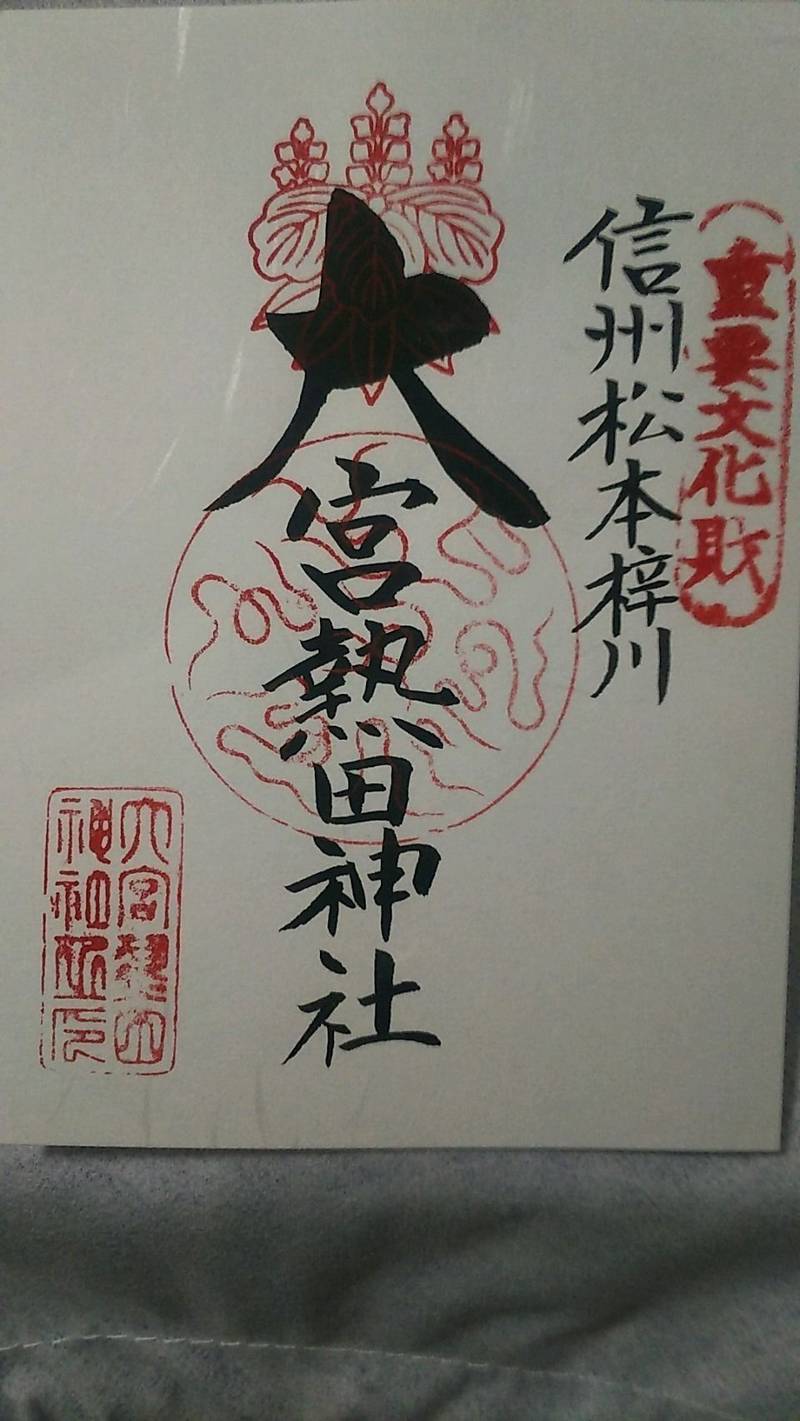 （重要文化財）
信州松本梓川
大宮熱田神社
大宮熱田
神社所印